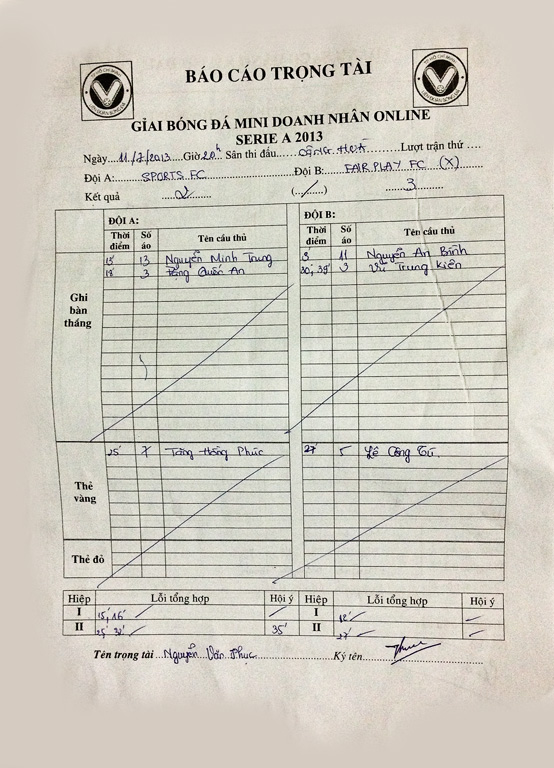 BÁO CÁO TRỌNG TÀI
GIẢI BÓNG ĐÁ MINI DOANH NHÂN ONLINE
SERIE A 2013
Ngày 11/7/2013 Giờ 20h Sân thi đấu CỘNG HOÀ Lượt trận thứ ....
Đội A: SPORTS FC Đội B: FAIR PLAY FC (X)
Kết quả 2 (../..) 3
ĐỘI A: ĐỘI B:
Thời điểm Số áo Tên cầu thủ Thời điểm Số áo Tên cầu thủ
Ghi bàn thắng
15' 13 Nguyễn Minh Trung 11 Nguyễn An Bình
18' 3 Đặng Quốc An 30', 39' 3 Vũ Trung Kiên
Thẻ vàng
25' 7 Tăng Hồng Phúc 27' 5 Lê Công Tú
Thẻ đỏ
Hiệp Lỗi tổng hợp Hội ý Hiệp Lỗi tổng hợp Hội ý
I 15', 16' I 12'
II 25' 32' 35' II 27'
Tên trọng tài Nguyễn Văn Phúc Ký tên